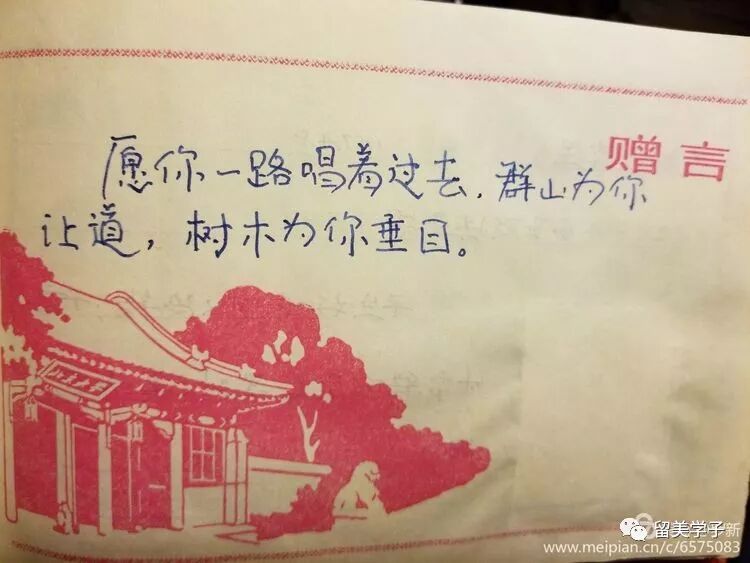 赠言
愿你一路唱着过去，群山为你
让道，树木为你垂目。
留美学子
www.meipian.cn/c/6575083